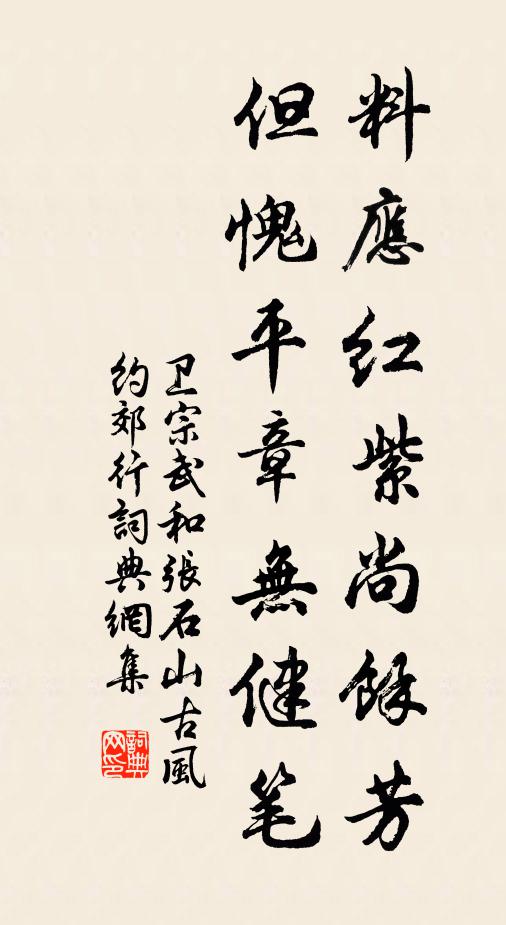 料應紅紫尚餘芳
但愧平章無健笔
卫宗武和張石山古風
約郊行詞典網集
詞典
网印